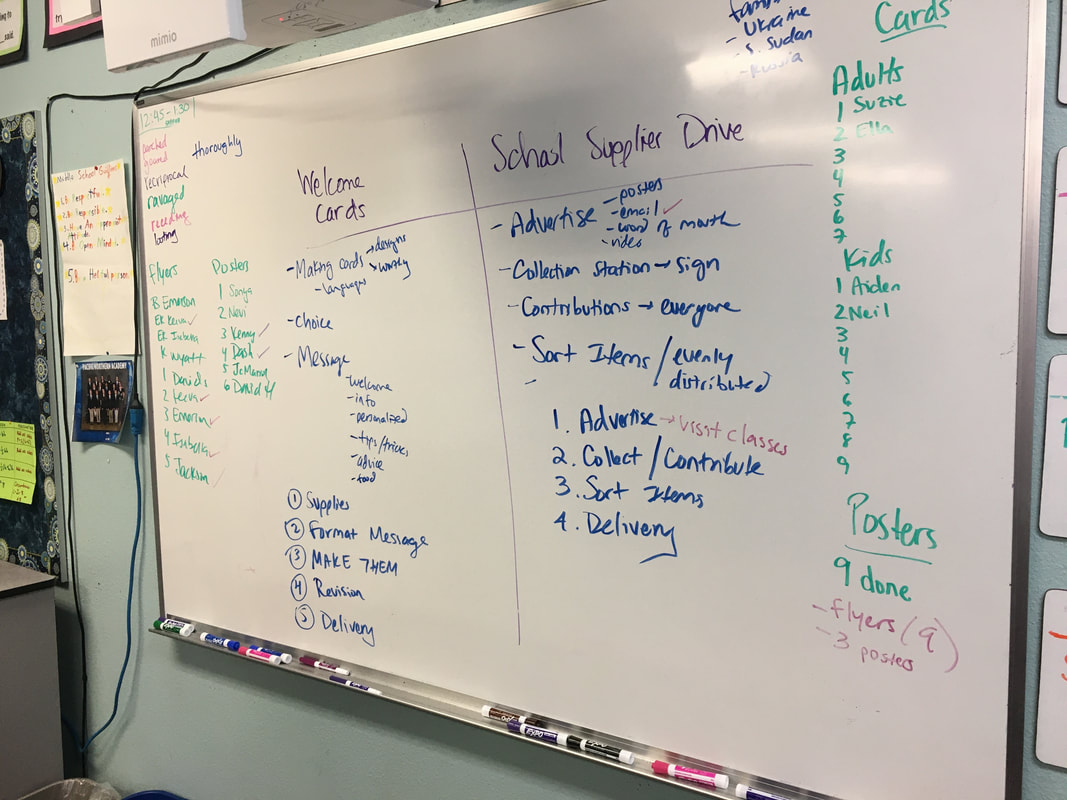 mimio
12:45-1:30
parched
reciprocal
ravaged
receding
looting
thoroughly
Flyers
B Emerson
EK Keiva ✓
EK Isabella
K Wyatt
1 Davids
2 Keeva ✓
3 Emerson ✓
4 Isabella ✓
5 Jackson ✓
Posters
1 Sonya
2 Navi
3 Kenny ✓
4 Dash ✓
5 JcManus
6 David H
Welcome
Cards
- Making cards → designs
→ worthy
- languages
- Choice
- Message
- welcome
- info
- personalized
- tips/tricks
- advice
- food
① Supplies
② Format Message
③ MAKE THEM
④ Revision
⑤ Delivery
School Supplier Drive
- Advertise
- posters
- email ✓
- word of mouth
- video
- Collection station → sign
- Contributions → everyone
- Sort Items / evenly
distributed
-
1. Advertise → visit classes
2. Collect / Contribute
3. Sort Items
4. Delivery
- Ukraine
- S. Sudan
- Russia
Cards
Adults
1 Suzie
2 Ella
3
4
5
6
7
Kids
1 Aiden
2 Neil
3
4
5
6
7
8
9
Posters
9 done
- flyers (9)
- 3 posters
Middle School Supplies
5. Be Helpful
PACIFIC NORTHERN ACADEMY
EXPO